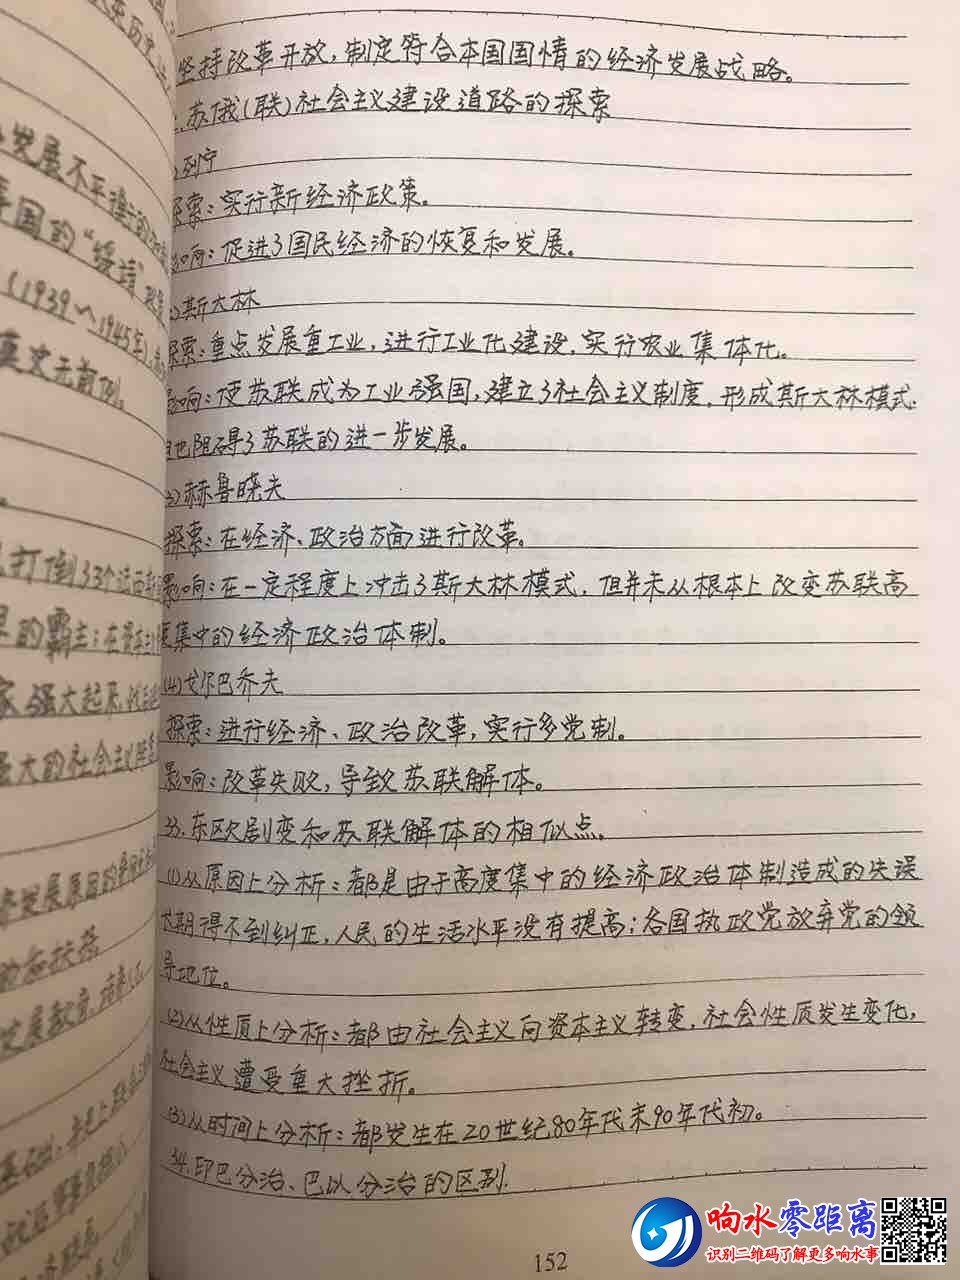 坚持改革开放，制定符合本国国情的经济发展战略。
.苏俄(联)社会主义建设道路的探索
)列宁
探索：实行新经济政策。
影响：促进了国民经济的恢复和发展。
)斯大林
探索：重点发展重工业，进行工业化建设，实行农业集体化。
影响：使苏联成为工业强国，建立了社会主义制度，形成斯大林模式.
但也阻碍了苏联的进一步发展。
3)赫鲁晓夫
探索：在经济、政治方面进行改革。
影响：在一定程度上冲击了斯大林模式，但并未从根本上改变苏联高
度集中的经济政治体制。
(4)戈尔巴乔夫
探索：进行经济、政治改革，实行多党制。
影响：改革失败，导致苏联解体。
33.东欧剧变和苏联解体的相似点。
(1)从原因上分析：都是由于高度集中的经济政治体制造成的失误
长期得不到纠正，人民的生活水平没有提高；各国执政党放弃党的领
导地位。
(2)从性质上分析：都由社会主义向资本主义转变，社会性质发生变化，
社会主义遭受重大挫折。
(3)从时间上分析：都发生在20世纪80年代末90年代初。
34.印巴分治、巴以分治的区别.
152
发展不平衡的
国的“绥靖”政策
(1939～1945年)
史无前例。
打倒33个法西斯
里的霸主；在资本主
家强大起来
强大的社会主义阵营
发展原因的
的扶持
发展教育
响水零距离
识别二维码了解更多响水事